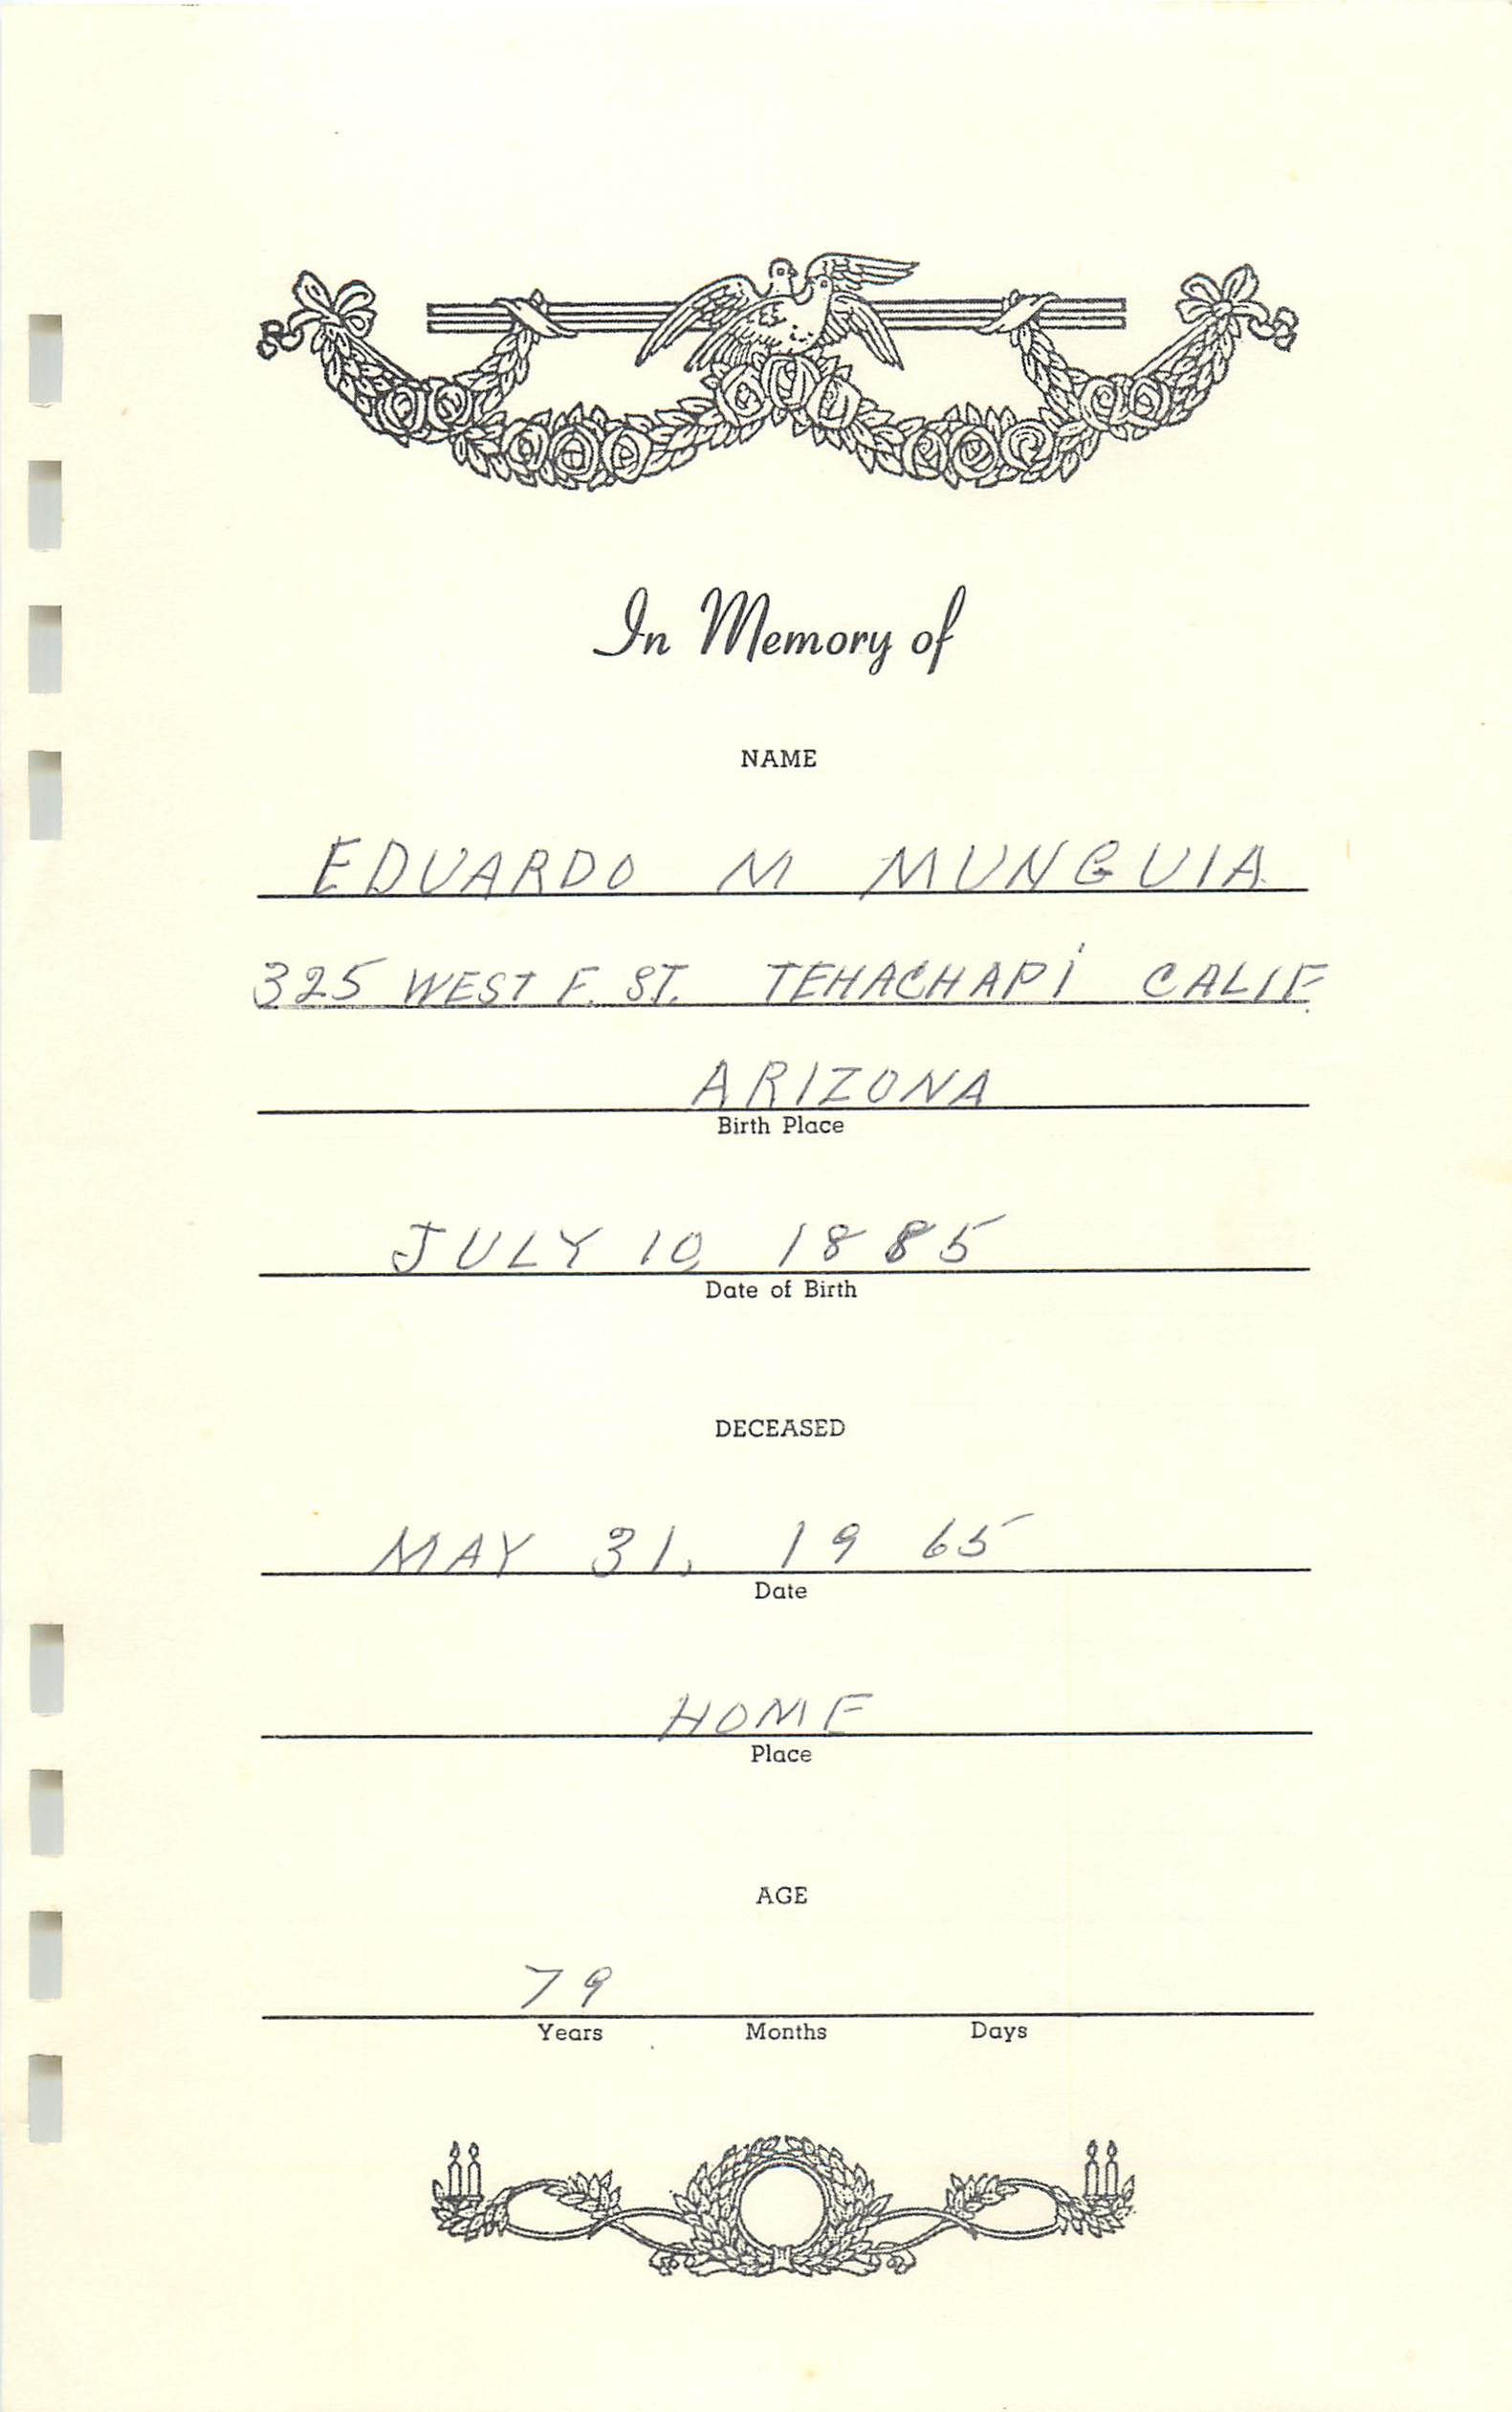 In Memory of
NAME
EDUARDO M MUNGUIA
325 WEST F. ST. TEHACHAPI CALIF.
ARIZONA
Birth Place
JULY 10, 1885
Date of Birth
DECEASED
MAY 31, 19 65
Date
HOME
Place
AGE
79
Years Months Days